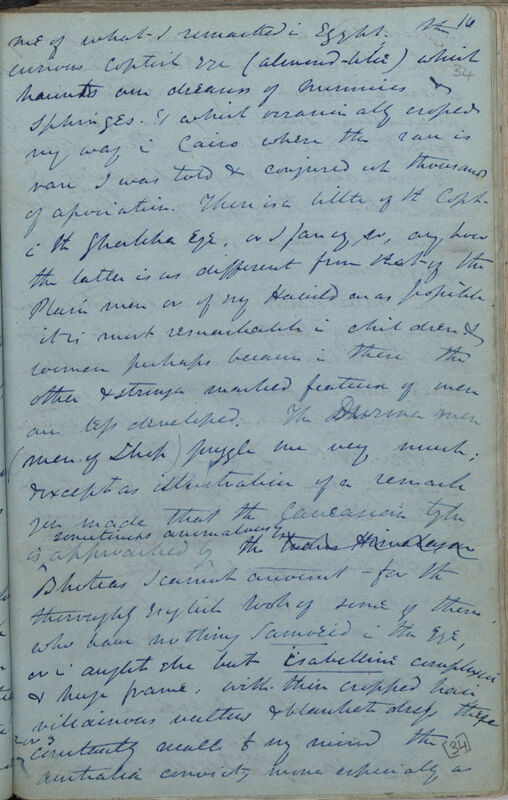 me of what I remarked in Egypt. The 16
curious Coptish Eye (almond-like) which 34
haunts our dreams of mummies &
Sphinges. & which occasionally crosped
my way i Cairo where the race is
rare I was told & conjured up thousands
of association. There is a little of the Copt
i the Ghorkha Eye, or I fancy so, any how
the latter is as different from that of the
Plain men or of my Haiild on as possible
it is most remarkable i children &
women perhaps because i them the
other & stronger marked features of men
are less developed. The Dhurma men
(men of Dhup) puzzle me very much;
& except as illustration of a remark
you made that the Caucasian type
sometimes anomalously
is approached by the Indo Himalayan
Bhoteas I cannot account for the
thoroughly English look of some of them
who have nothing Samoeid i the Eye,
or i aught else but isabelline complexion
& huge frame: with thin cropped hair
villainous & blanket dress these
2 or 3
constantly recall to my mind the
Australia convicts more especially as
[34]